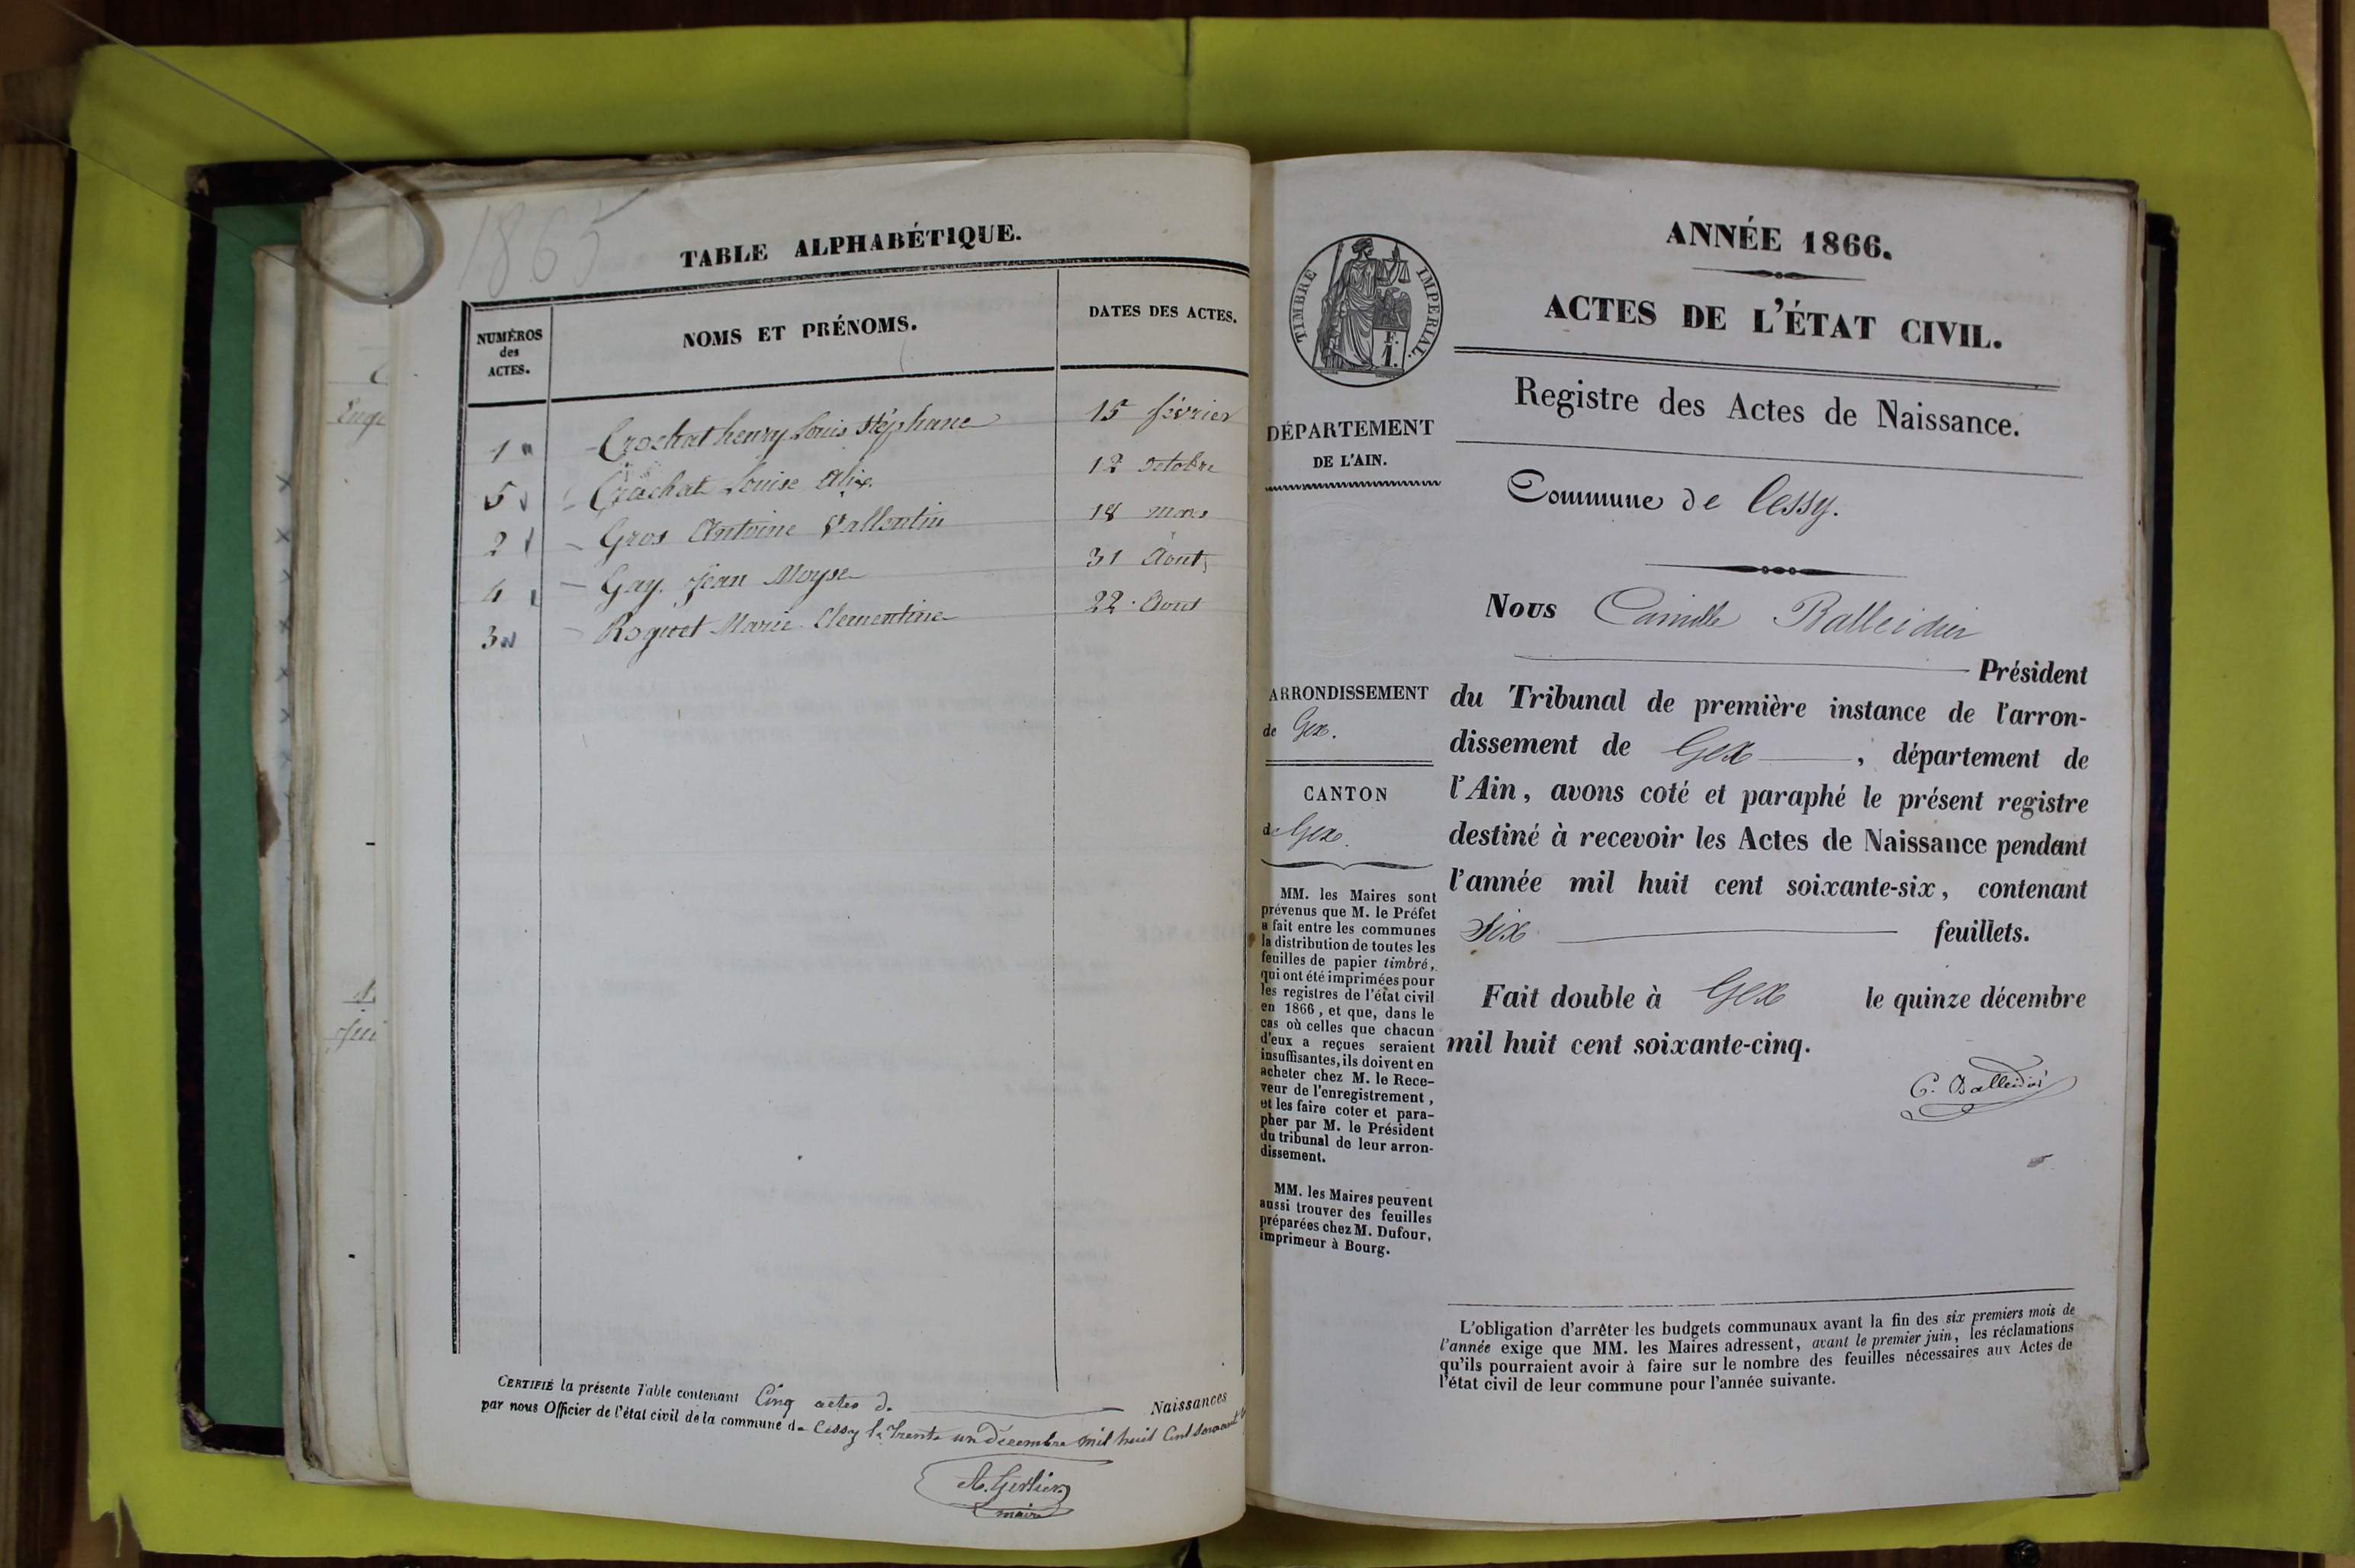 1865
TABLE ALPHABÉTIQUE.
NUMÉROS des ACTES.
NOMS ET PRÉNOMS.
DATES DES ACTES.
1 Crochat henry Louis Stéphane 15 février
5 Crochat Louise Alix 12 octobre
2 Gros Antoine Vallentin 18 mars
4 Gay Jean Moyse 31 Aout
3 Roquet Marie Clementine 22 Aout
CERTIFIÉ la présente Table contenant Cinq actes de Naissances
par nous Officier de l'état civil de la commune de Cessy le Trente un décembre mil huit Cent
maire
TIMBRE IMPERIAL.
F.
1.
DÉPARTEMENT
DE L'AIN.
ARRONDISSEMENT
de Gex.
CANTON
de Gex.
MM. les Maires sont
prévenus que M. le Préfet
a fait entre les communes
la distribution de toutes les
feuilles de papier timbré,
qui ont été imprimées pour
les registres de l'état civil
en 1866, et que, dans le
cas où celles que chacun
d'eux a reçues seraient
insuffisantes, ils doivent en
acheter chez M. le Rece-
veur de l'enregistrement,
et les faire coter et para-
pher par M. le Président
du tribunal de leur arron-
dissement.
MM. les Maires peuvent
aussi trouver des feuilles
préparées chez M. Dufour,
imprimeur à Bourg.
ANNÉE 1866.
ACTES DE L'ÉTAT CIVIL.
Registre des Actes de Naissance.
Commune de Cessy.
Nous Camille Balleidier
Président
du Tribunal de première instance de l'arron-
dissement de Gex, département de
l'Ain, avons coté et paraphé le présent registre
destiné à recevoir les Actes de Naissance pendant
l'année mil huit cent soixante-six, contenant
Six feuillets.
Fait double à Gex le quinze décembre
mil huit cent soixante-cinq.
C. Balleidier
L'obligation d'arrêter les budgets communaux avant la fin des six premiers mois de
l'année exige que MM. les Maires adressent, avant le premier juin, les réclamations
qu'ils pourraient avoir à faire sur le nombre des feuilles nécessaires aux Actes de
l'état civil de leur commune pour l'année suivante.